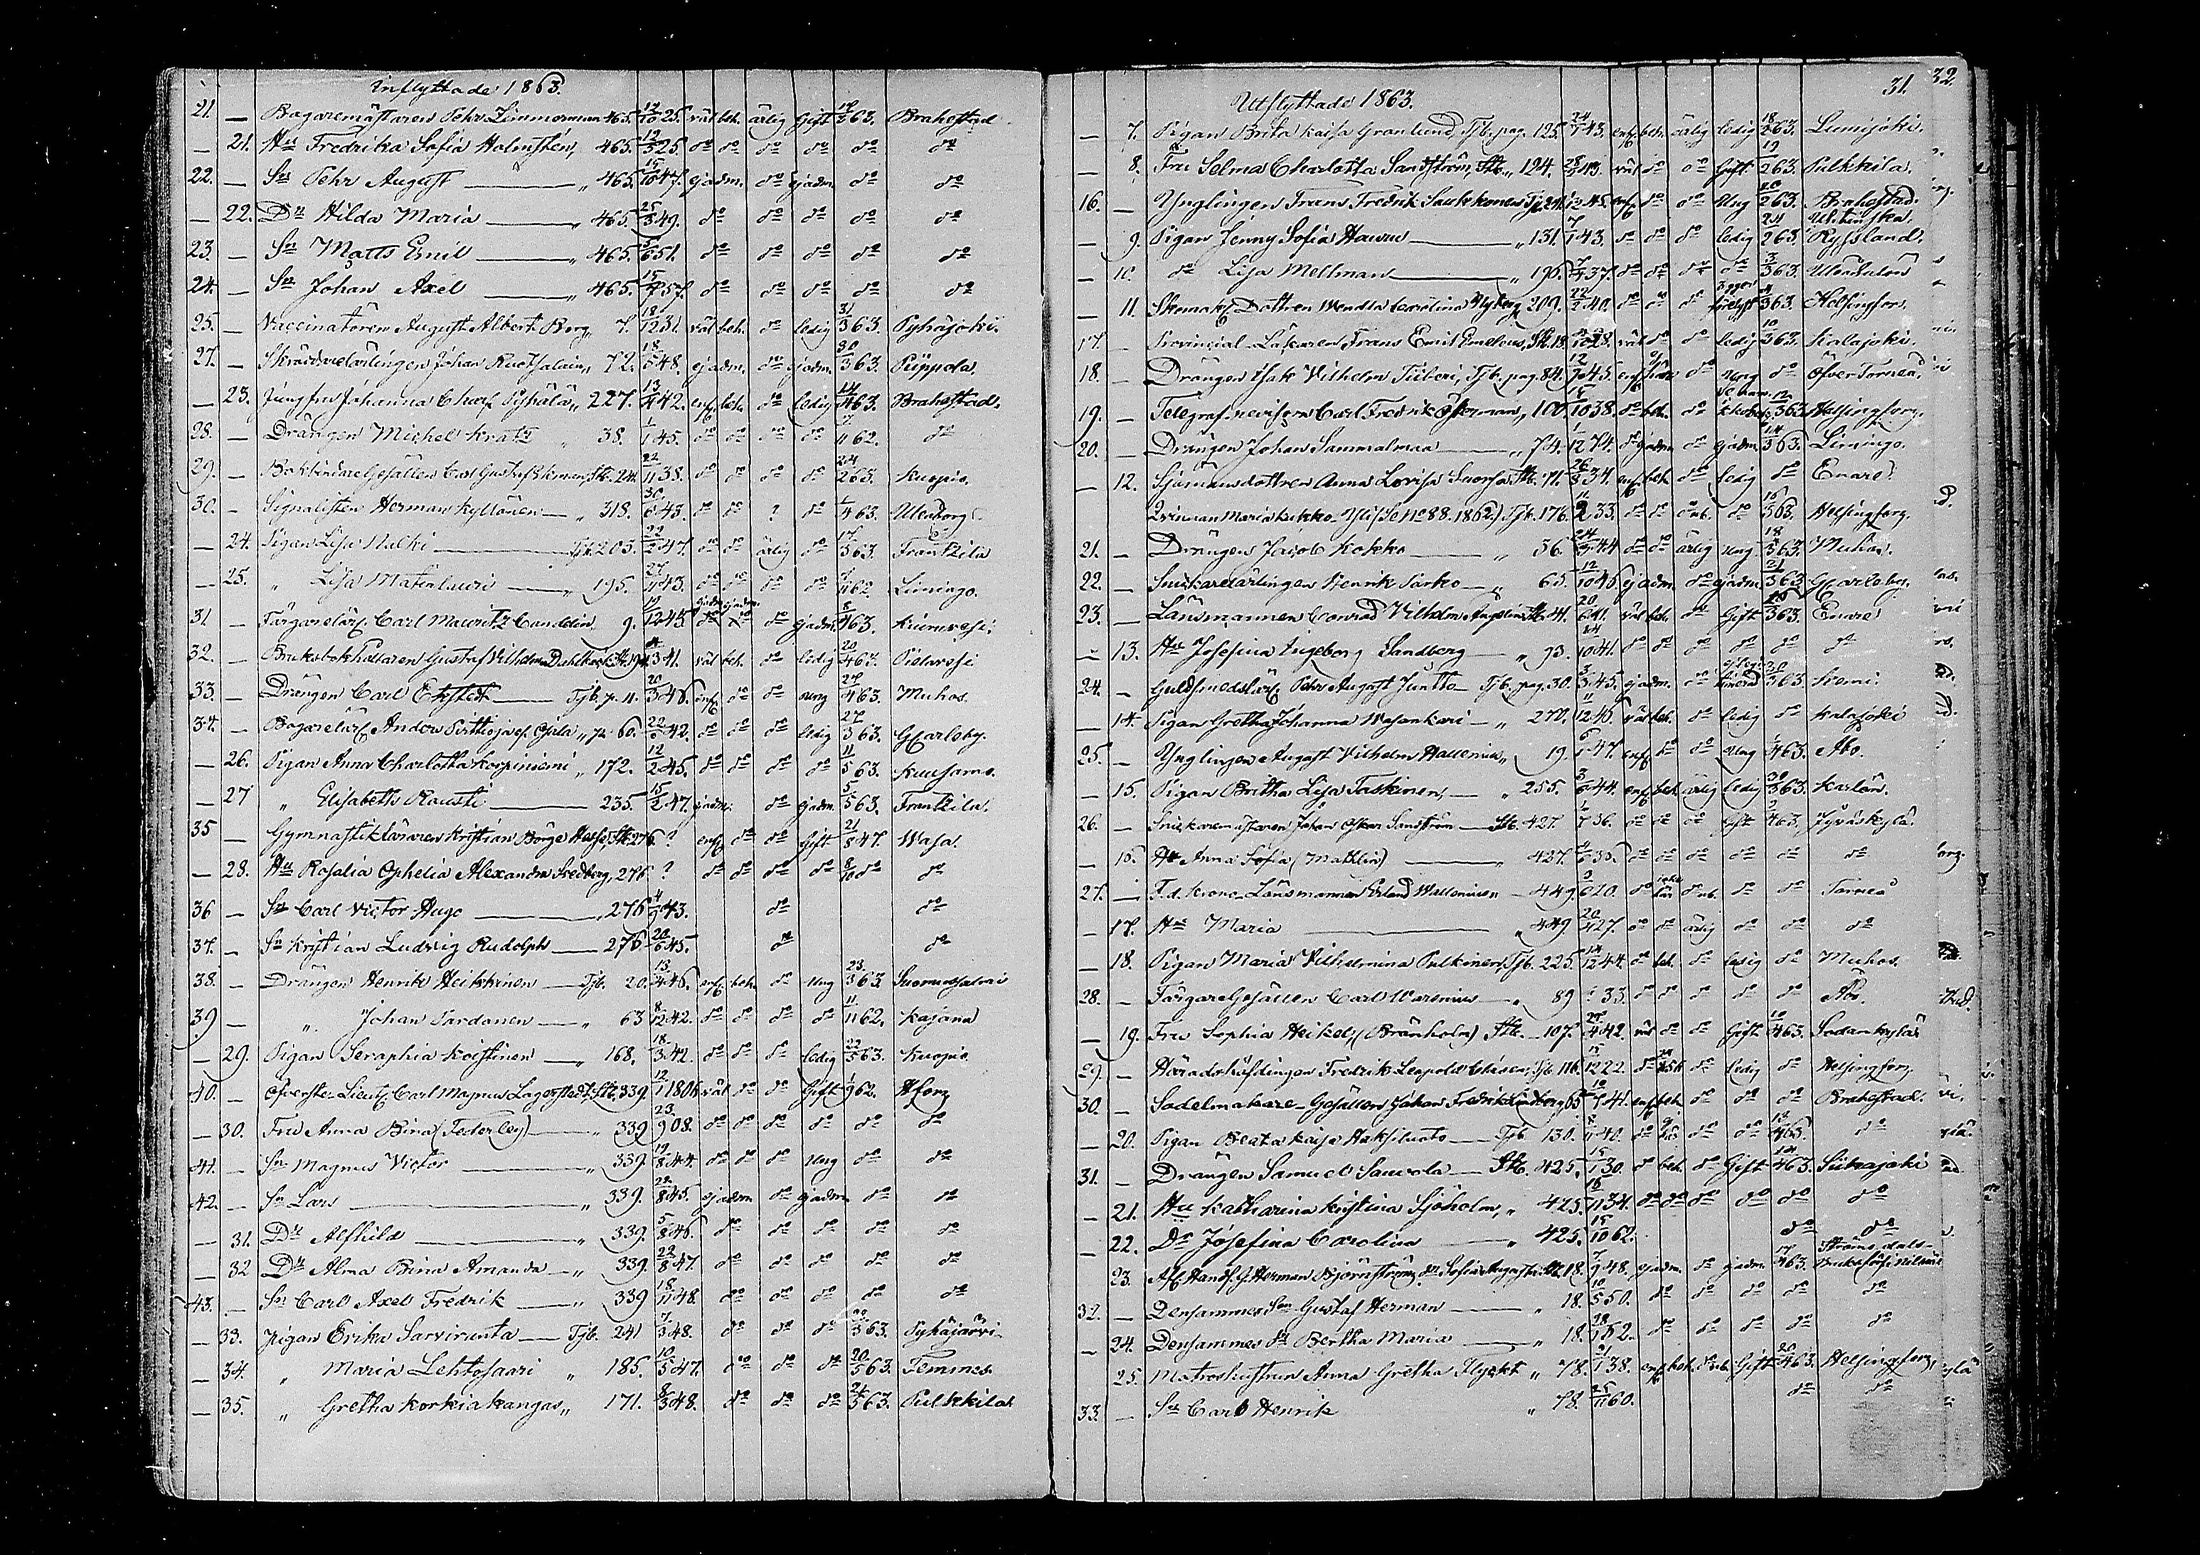 Inflyttade 1863.
21. — Bagaremästaren Pehr Zimmerman 465. 25. väl beh. ärlig Gift 63. Brahestad
— 21. Hu Fredrika Sofia Holmstén, 465. 12/3 25. do do do do do do
22. — Sn Pehr August — " 465. 15/10 47. ej adm. do ej adm. do do
— 22. Dr Hilda Maria — " 465. 25/3 49. do do do do do
23. — Sn Matts Emil — " 465. 6 51. do do do do do
24. — Sn Johan Axel — " 465. 15 57. do do do do do
25. — Vaccinatören August Albert Berg " 7. 18/12 31. väl beh. do ledig 31/3 63. Pyhäjoki.
27. — Skräddarelärlingen Johan Ruotsalain " 72. 18 48. ej adm. do ej adm. 30/3 63. Piippola.
— 23. Jungfru Johanna Charl. Pyhälä " 227. 13 42. enf. beh. do ledig 14/4 63. Brahestad.
28. — Drängen Michel Kratz " 38. 1/1 45. do do do do 11 62. do
29. — Bokbindare Gesällen Carl Gustaf Ekman, Stb. 24. 22/11 38. do do do do 24/2 63. Kuopio.
30. — Signalisten Herman Kyllönen — " 318. 30/6 43. do do ? do 1/4 63. Uleåborg.
— 24. Pigan Lisa Malki — Tjb. 203. 22/2 47. do do ärlig do 17/3 63. Frantzila
— 25. " Lisa Matinlauri — " 195. 27/11 43. do do do do 11 62. Limingo.
31 — Färgarelärl. Carl Mauritz Candelin, 9. 12 45. ej adm. do ej adm. 8/4 63. Kiuruvesi.
32. — Bruksbokhållaren Gustaf Vilhelm Dahlbeck Stb. 194. 4/3 41. väl beh. do ledig 20/4 63. Pielavesi
33. — Drängen Carl Ekstedt — Tjb. p. 11. 20/3 46. enf. do do ung 27/4 63. Muhos.
34. — Bagarelärl. Anders Pirttisoja ej. Ojala " p. 60. 22 42. do do do ledig 27/3 63. GCarleby.
— 26. Pigan Anna Charlotta Korpiniemi " 172. 12/2 45. do do do do 11/5 63. Kuusamo.
— 27 " Elisabeth Rausti — 235. 15/2 47. ej adm. do ej adm. 5/5 63. Frantzila.
35 — Gymnastikläraren Kristian Börge Hesse, Stb. 276 ? enf. do do Gift 21/8 47. Wasa.
— 28. Hu Rosalia Ophelia Alexandra Fredberg, 276 ? do do do do 8/10 do do
36 — Sn Carl Victor Hugo — " 276 4/9 43. do do
37. — Sn Kristian Ludvig Rudolph — 276 20/6 45. do do
38. — Drängen Henrik Heikkinen — Tjb. 20. 13/4 46. enf. beh. do Ung 23/3 63. Suomussalmi
39 — " Johan Tardanen — " 63 8/12 42. do do do do 11/11 62. Kajana
— 29. Pigan Seraphia Koistinen — " 168. 18/3 42. do do do ledig 22/5 63. Kuopio.
40. — Öfverste Lieut. Carl Magnus Lagerstedt, Stb. 339 12/1 1806 väl do do Gift 1/9 62. Hfors
— 30. Fru Anna Bina (Federley) — " 339 23/9 08. do do do do do do
41. — Sn Magnus Victor — " 339. 19/8 44. do do do Ung do do
42. — Sn Lars — " 339. 22/8 45. ej adm do ej adm do do
— 31. Dr Alfhild — " 339. 5/8 46. do do do do do
— 32 Dr Alma Bina Amanda — " 339. 22/8 47. do do do do do
43. — Sn Carl Axel Fredrik — " 339 18/11 48. do do do do do
— 33. Pigan Erika Sarvirunta — Tjb. 241 7/3 48. do do do 20/3 63. Pyhäjärvi
— 34. " Maria Lehtosaari " 185. 10/5 47. do do do 20/5 63. Temmes.
— 35. " Gretha Korkiakangas " 171. 8/3 48. do do do 24/5 63. Pulkkila
Utflyttade 1863.
31.
32.
— 7. Pigan Brita Kaisa Granlund, Tjb. pag. 125. 24/1 43. enf. beh. ärlig ledig 18/2 63. Lumijoki.
— 8. Fru Selma Charlotta Sandström, Stb. " 124. 28 43. väl do do Gift 19/2 63. Pulkkila.
16. — Ynglingen Frans Fredrik Saukkonen Tjb. 241. 12 45. enf. do do Ung 20/2 63. Brahestad.
— 9. Pigan Jenny Sofia Hauru — " 131. 7/1 43. do do do ledig 24/2 63. Ryssland.
— 10. do Lisa Mellman — " 196. 7/4 37. do do do do 3/3 63. Uleåsalon
— 11. Skomak. Dottren Wendla Carolina Nyberg, 209. 22/2 40. do do do 4/3 63. Helsingfors.
17. — Provincial-Läkaren Frans Emil Emeleus, Stb. 18. 10 28. väl do do ledig 10/3 63. Kalajoki.
18. — Drängen Isak Vilhelm Tiiberi, Tjb. pag. 84. 12 45. enf. do Ung do Öfver Torneå
19. — Telegraf-revisorn Carl Fredrik Österman " 100. 10 38. do beh. do 12/3 63. Helsingfors.
20. — Drängen Johan Sammalmaa — " 74. 1/12 74. do ej adm. do ej adm. 14/3 63. Limingo.
— 12. Sjömansdottren Anna Lovisa Snorsa Stb. 71. 26/8 34. enf. beh. do ledig do Enare
Qvinnan Maria Kukko-Yli (Se No 88. 1862.) Tjb. 176. 11/2 33. do do do 16/3 63. Helsingfors.
21. — Drängen Jacob Kokko — " 36. 24 44 do do ärlig Ung 18/3 63. Muhos.
22. — Snickarelärlingen Henrik Sarko — " 63. 12/10 46 ej adm. do ej adm. 21/3 63 GCarleby.
23. — Länsmannen Conrad Vilhelm Angelin Stb. 41. 20/6 41. väl beh. do Gift 28/3 63. Enare
— 13. Hu Josefina Ingeborg Sandberg — " 93. 24/10 41. do do do do do do
24. — Guldsmedslärl. Pehr August Juntto Tjb. pag. 30. 3/3 45. ej adm. do 30/3 63. Kemi.
— 14. Pigan Gretha Johanna Wasankari — " 277. 11/12 40. väl beh. do ledig do Kalajoki
25. — Ynglingen August Vilhelm Hallenius " 19. 6/1 47. enf. do do Ung 1/4 63. Åbo.
— 15. Pigan Britha Lisa Taskinen, — " 255. 3/6 44. enf. beh. ärlig ledig 30/3 63. Karlön.
26. — Snickaremästaren Johan Oskar Sandström — Stb. 427. 1 36. do do do Gift 2/4 63. Jyväskylä.
— 16. Hu Anna Sofia (Mathlin) — " 427. 36. do do do do do do
27. — T.d. Krono-Länsmannen Erland Wallenius — 449. 2/6 20. do do do do Torneå
— 17. Hu Maria — " 449 20 27. do do ärlig do do do
— 18. Pigan Maria Vilhelmina Pulkinen, Tjb. 225. 14/12 44. do beh. do ledig do Muhos.
28. — Färgare Gesällen Carl Warenius — " 89 ? 33. do do do do do Åbo.
— 19. Fru Sophia Heikel, (Bränholm) Stb. — 107. 27/4 42. väl do do Gift 10/4 63. Sodankylä
29. — Häradshöfdingen Fredrik Leopold Clásen, Tjb. 116. 15/12 22. do do ledig do Helsingfors.
30. — Sadelmakare-Gesällen Johan Fredrik Lindberg, 65 10 41. enf. beh. do do do Brahestad.
— 20. Pigan Beata Kaisa Haksiluoto — Tjb. 130. 8/11 40. do do do 13/4 63. do
31. — Drängen Samuel Sauvola — Stb. 425. 15/1 30. do beh. do Gift 14/4 63. Siikajoki
— 21. Hu Katharina Kristina Sjöholm, " 425. 16/11 34. do do do do do do
— 22. Dr Josefina Carolina — " 425. 15/10 62. do do
— 23. Afl. Handl. G. Herman Björnström, dr Sofia Augusta, Stb. 18. 7/9 48. ej adm. do ej adm. 17/4 63. Ströms-dals-Bruksförsamling
32. — Densammes Son Gustaf Herman — " 18. 10/5 50. do do do do do
— 24. Densammes dr Bertha Maria — " 18. 28/1 52. do do do do do
25. — Matroshustrun Anna Gretha Flyckt " 78. 21/1 38. enf. beh. Gift 20/4 63. Helsingfors,
33. — Sn Carl Henrik " 78. 25/11 60. do do